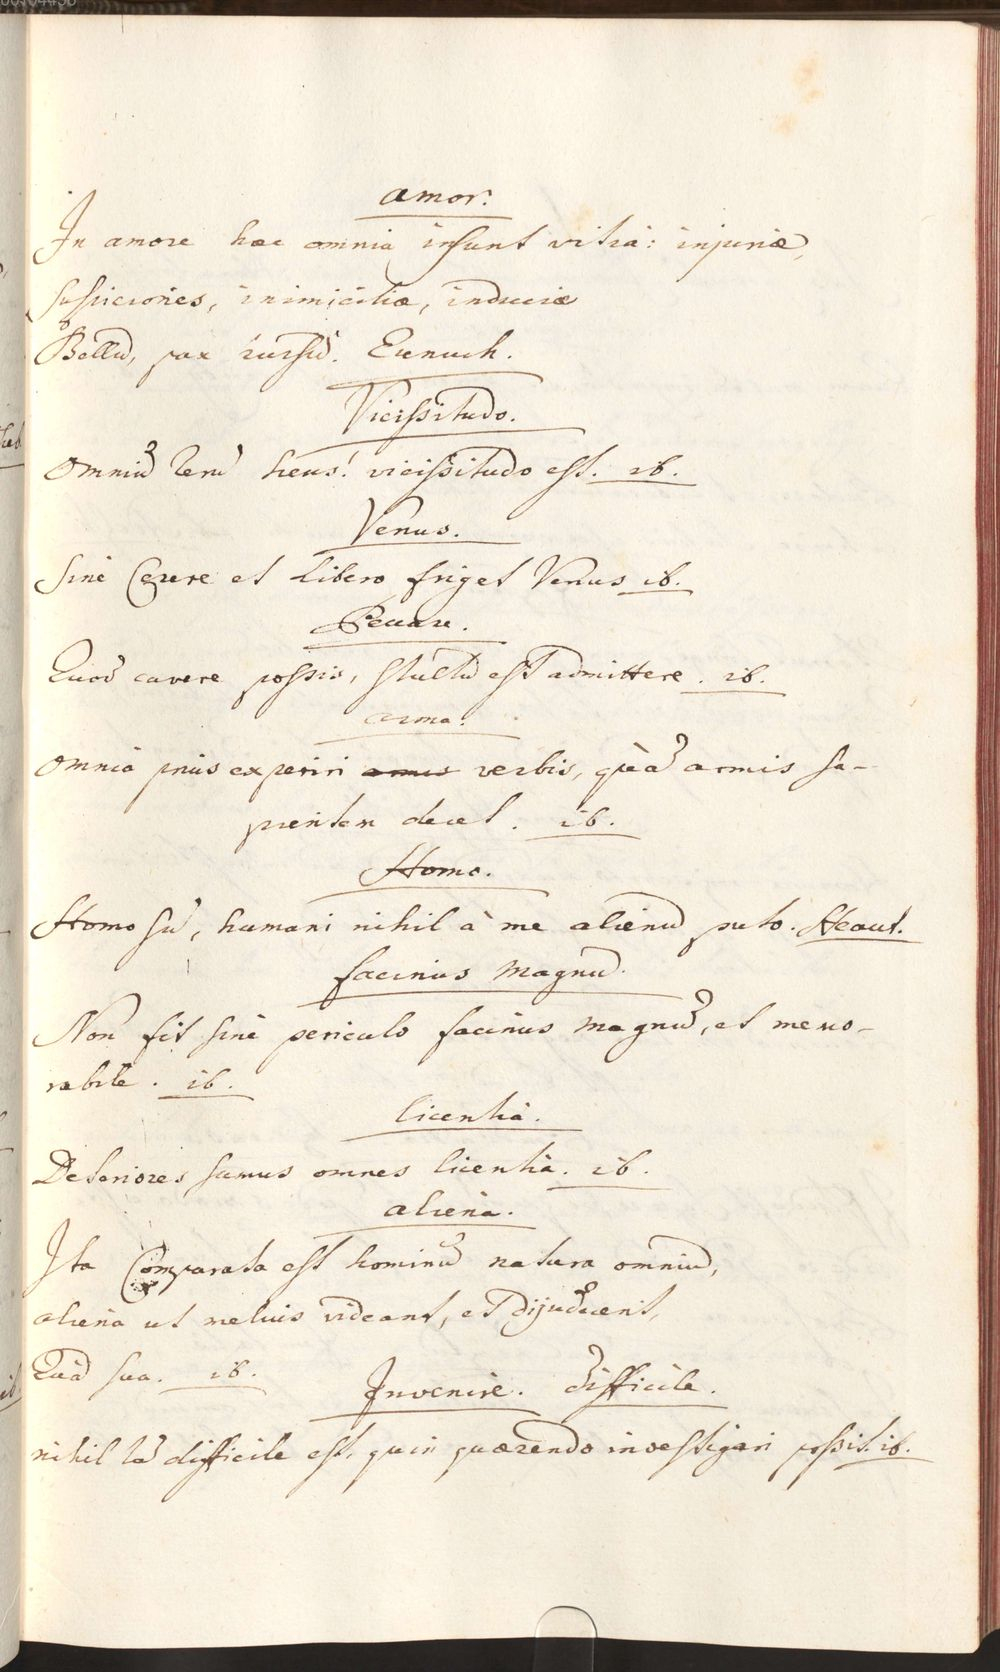 amor.
In amore haec omnia insunt vitia: injuriæ,
suspiciones, inimicitiæ, induciæ
Bellū, pax rursū. Eunuch.
Vicissitudo.
Omniū rerū heus! vicissitudo est. ib.
Venus.
Sine Cerere et Libero friget Venus ib.
Peccare.
Quod cavere possis, stultū est admittere. ib.
arma.
Omnia prius experiri verbis, quā armis sa-
pientem decet. ib.
Homo.
Homo sū, humani nihil à me alienū puto. Heaut.
facinus magnū.
Non fit sine periculo facinus magnū, et memo-
rabile. ib.
licentia.
Deteriores sumus omnes licentia. ib.
aliena.
Ita Comparata est hominū natura omniū,
aliena ut melius videant, et dijudicent,
Quā sua. ib.
Invenire. difficile.
nihil tā difficile est, quin quærendo investigari possit. ib.